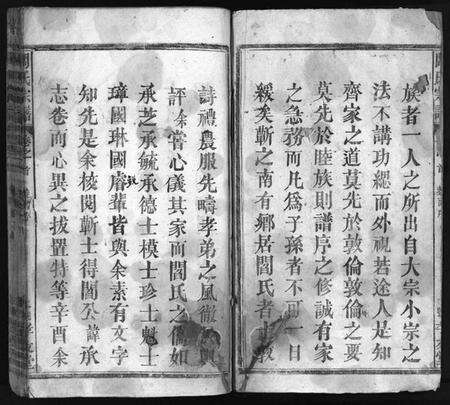 族者一人之所出自大宗小宗之
法不講功緦而外視若途人是知
齊家之道莫先於敦倫敦倫之要
莫先於睦族則譜序之修誠有家
之急務而凡為子孫者不可一日
緩矣蘄之南有鄉居閻氏者士敦
詩禮農服先疇孝弟之風徹
評餘嘗心儀其家而閻氏之儔如
承芝承毓承德士模士珍士魁士
璋國琳國睿我輩皆與余素有文字
知先是余校閱蘄士得閻名諱承
志卷而心異之拔置特等辛酉余